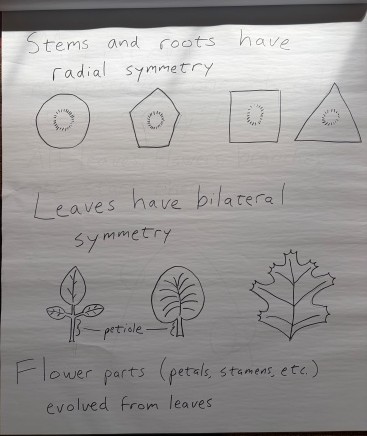 Stems and roots have
radial symmetry
Leaves have bilateral
symmetry
petiole
Flower parts (petals, stamens, etc.)
evolved from leaves